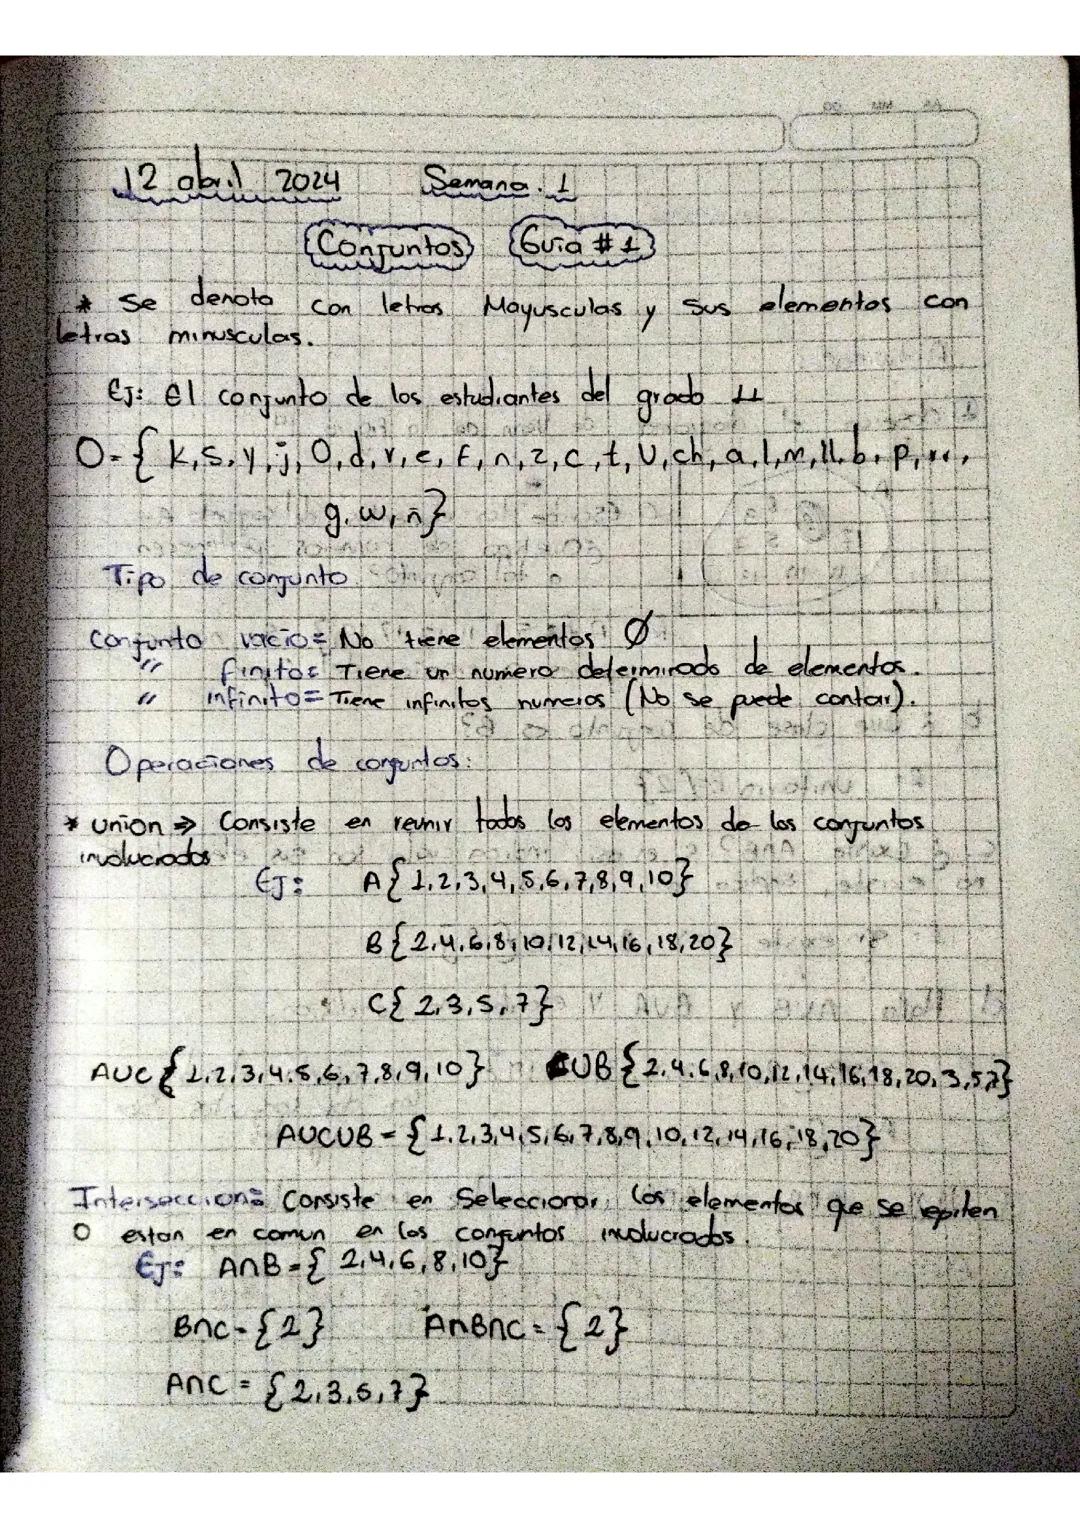 12 abril 2024 Semana. 1
Conjuntos Guia #1
* Se denota con letras Mayusculas y sus elementos con
letras minusculas.
EJ: El conjunto de los estudiantes del grado 11
O={k,s,y,j,O,d,r,e,f,n,z,c,t,U,ch,a,l,m,ll,b,p,
g,w,ñ}
Tipo de conjunto
Conjunto vacio= No tiene elementos Ø
" finito= Tiene un numero determinado de elementos.
" infinito= Tiene infinitos numeros (No se puede contar).
Operaciones de conjuntos:
* union ⇒ Consiste en reunir todos los elementos de los conjuntos
involucrados
EJ: A{1,2,3,4,5,6,7,8,9,10}
B{2,4,6,8,10,12,14,16,18,20}
C{2,3,5,7}
AUC{1,2,3,4,5,6,7,8,9,10} CUB{2,4,6,8,10,12,14,16,18,20,3,5,7}
AUCUB={1,2,3,4,5,6,7,8,9,10,12,14,16,18,20}
Interseccion= Consiste en Seleccionar los elementos que se repiten
O estan en comun en los conjuntos involucrados.
EJ: A∩B={2,4,6,8,10}
B∩C={2} A∩B∩C={2}
A∩C={2,3,5,7}